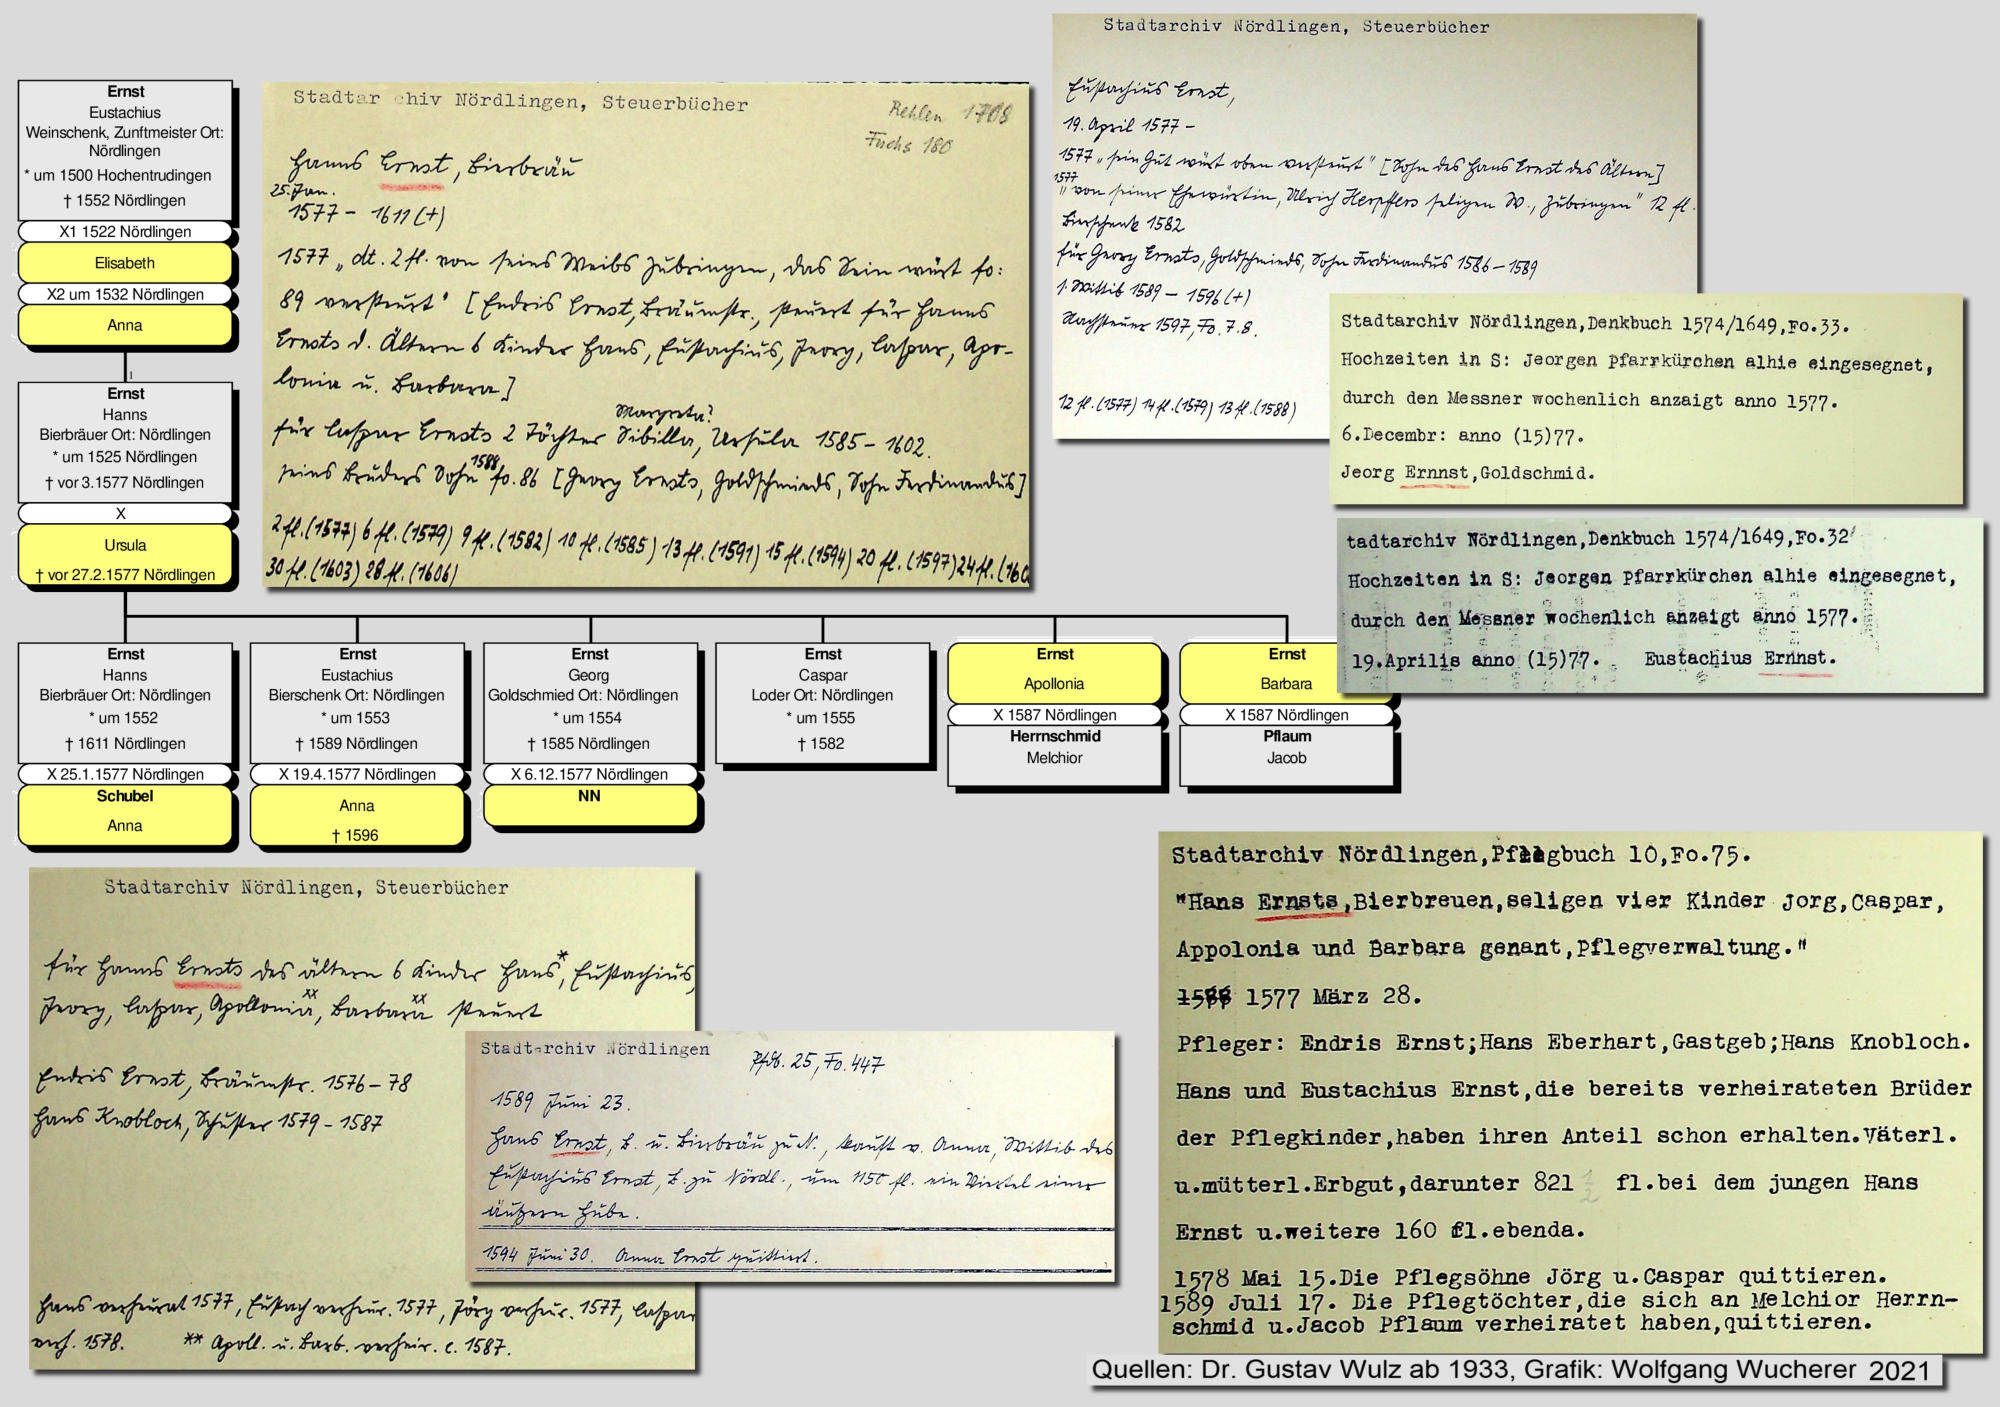 Ernst
Eustachius
Weinschenk, Zunftmeister Ort:
Nördlingen
* um 1500 Hochentrudingen
† 1552 Nördlingen
X1 1522 Nördlingen
Elisabeth
X2 um 1532 Nördlingen
Anna
1
Ernst
Hanns
Bierbräuer Ort: Nördlingen
* um 1525 Nördlingen
† vor 3.1577 Nördlingen
X
Ursula
† vor 27.2.1577 Nördlingen
Ernst
Hanns
Bierbräuer Ort: Nördlingen
* um 1552
† 1611 Nördlingen
X 25.1.1577 Nördlingen
Schubel
Anna
Ernst
Eustachius
Bierschenk Ort: Nördlingen
* um 1553
† 1589 Nördlingen
X 19.4.1577 Nördlingen
Anna
† 1596
Ernst
Georg
Goldschmied Ort: Nördlingen
* um 1554
† 1585 Nördlingen
X 6.12.1577 Nördlingen
NN
Ernst
Caspar
Loder Ort: Nördlingen
* um 1555
† 1582
Ernst
Apollonia
X 1587 Nördlingen
Herrnschmid
Melchior
Ernst
Barbara
X 1587 Nördlingen
Pflaum
Jacob
Stadtar chiv Nördlingen, Steuerbücher
Rehlen 1708
Fuchs 180
Hanns Ernst, Bierbräu
25. Jan.
1577 – 1611 (+)
1577 „dt. 2 fl. von seins Weibs Zubringen, das Sein würt fo:
89 versteurt" [Endris Ernst, Bräumstr., steuert für Hanns
Ernsts d. Ältern 6 Kinder Hans, Eustachius, Jeorg, Caspar, Apo-
lonia u. Barbara]
Margreta?
für Caspar Ernsts 2 Töchter Sibilla, Ursula 1585 – 1602.
seins Bruders Sohn 1588 fo. 86 [Georg Ernsts, Goldschmieds, Sohn Ferdinandus]
2 fl. (1577) 6 fl. (1579) 9 fl. (1582) 10 fl. (1585) 13 fl. (1591) 15 fl. (1594) 20 fl. (1597) 24 fl. (160
30 fl. (1603) 28 fl. (1606)
Stadtarchiv Nördlingen, Steuerbücher
Eustachius Ernst,
19. April 1577 –
1577 „sein Gut würt oben versteurt" [Sohn des Hans Ernst des Ältern]
1577 „von seiner Ehewürtin, Ulrich Herpffers seligen W., Zubringen" 12 fl.
Bierschenk 1582
für Georg Ernsts, Goldschmieds, Sohn Ferdinandus 1586 – 1589
s. Wittib 1589 – 1596 (+)
Nachsteuer 1597, Fo. 7.8.
12 fl. (1577) 14 fl. (1579) 13 fl. (1588)
Stadtarchiv Nördlingen,Denkbuch 1574/1649,Fo.33.
Hochzeiten in S: Jeorgen Pfarrkürchen alhie eingesegnet,
durch den Messner wochenlich anzaigt anno 1577.
6.Decembr: anno (15)77.
Jeorg Ernnst,Goldschmid.
tadtarchiv Nördlingen,Denkbuch 1574/1649,Fo.32
Hochzeiten in S: Jeorgen Pfarrkürchen alhie eingesegnet,
durch den Messner wochenlich anzaigt anno 1577.
19.Aprilis anno (15)77. Eustachius Ernnst.
Stadtarchiv Nördlingen, Steuerbücher
für Hanns Ernsts des ältern 6 Kinder Hans*, Eustachius,
Jeorg, Caspar, Apollonia xx, Barbara xx steuert
Endris Ernst, Bräumstr. 1576 – 78
Hans Knobloch, Schuster 1579 – 1587
Hans verheurat 1577, Eustach verheur. 1577, Jörg verheur. 1577, Caspar
verh. 1578. ** Apoll. u. Barb. verheir. c. 1587.
Stadtarchiv Nördlingen
Pfdb. 25, Fo. 447
1589 Juni 23.
Hans Ernst, B. u. Bierbräu zu N., kauft v. Anna, Wittib des
Eustachius Ernst, B. zu Nördl., um 1150 fl. ein Viertel einer
äußern Hube.
1594 Juni 30. Anna Ernst quittiert.
Stadtarchiv Nördlingen,Pflegbuch 10,Fo.75.
"Hans Ernsts,Bierbreuen,seligen vier Kinder Jorg,Caspar,
Appolonia und Barbara genant,Pflegverwaltung."
1577 März 28.
Pfleger: Endris Ernst;Hans Eberhart,Gastgeb;Hans Knobloch.
Hans und Eustachius Ernst,die bereits verheirateten Brüder
der Pflegkinder,haben ihren Anteil schon erhalten.Väterl.
u.mütterl.Erbgut,darunter 821 ½ fl.bei dem jungen Hans
Ernst u.weitere 160 fl.ebenda.
1578 Mai 15.Die Pflegsöhne Jörg u.Caspar quittieren.
1589 Juli 17. Die Pflegtöchter,die sich an Melchior Herrn-
schmid u.Jacob Pflaum verheiratet haben,quittieren.
Quellen: Dr. Gustav Wulz ab 1933, Grafik: Wolfgang Wucherer 2021